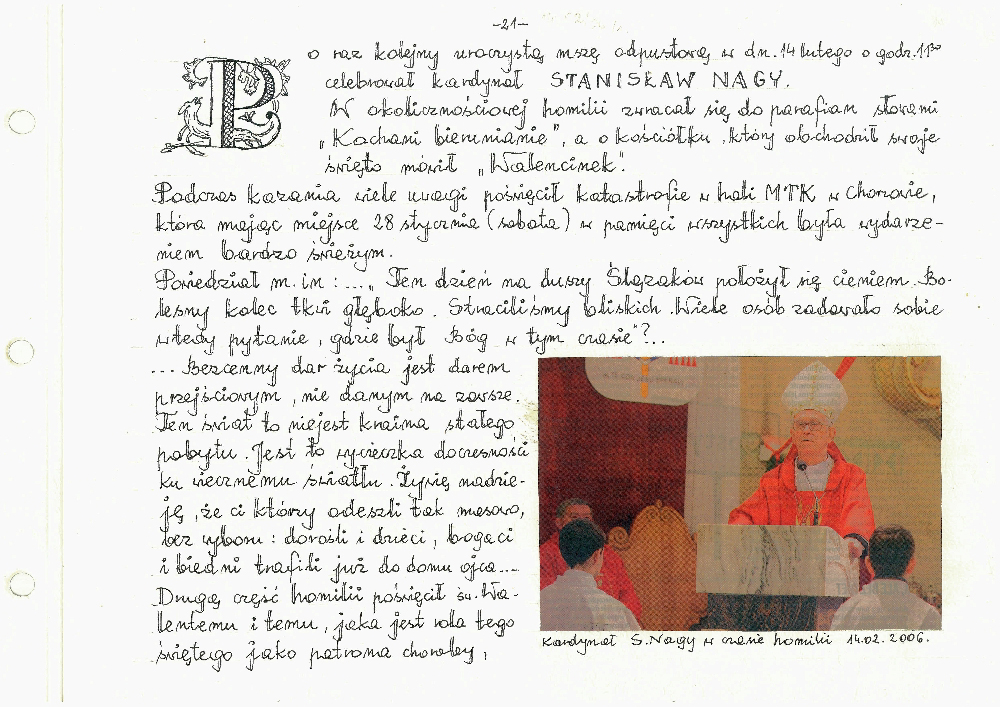 -21-
Po raz kolejny uroczystą mszę odpustową w dn. 14 lutego o godz. 11³⁰
celebrował kardynał STANISŁAW NAGY.
W okolicznościowej homilii zwracał się do parafian słowami
„Kochani bierunianie", a o kościółku, który obchodził swoje
święto mówił „Walencinek".
Podczas kazania wiele uwagi poświęcił katastrofie w hali MTK w Chorzowie,
która mając miejsce 28 stycznia (sobota) w pamięci wszystkich była wydarze-
niem bardzo świeżym.
Powiedział m.in : ...„ Ten dzień na duszy Ślązaków położył się cieniem. Bo-
lesny kolec tkwi głęboko. Straciliśmy bliskich. Wiele osób zadawało sobie
wtedy pytanie, gdzie był Bóg w tym czasie"?..
... Bezcenny dar życia jest darem
przejściowym, nie danym na zawsze.
Ten świat to niejest kraina stałego
pobytu. Jest to wycieczka doczesności
ku wiecznemu światłu. Żywię nadzie-
ję, że ci którzy odeszli tak masowo,
bez wyboru : dorośli i dzieci, bogaci
i biedni trafili już do domu ojca...
Drugą część homilii poświęcił św. Wa-
lentemu i temu, jaka jest rola tego
świętego jako patrona chorób,
Kardynał S. Nagy w czasie homilii 14.02.2006.